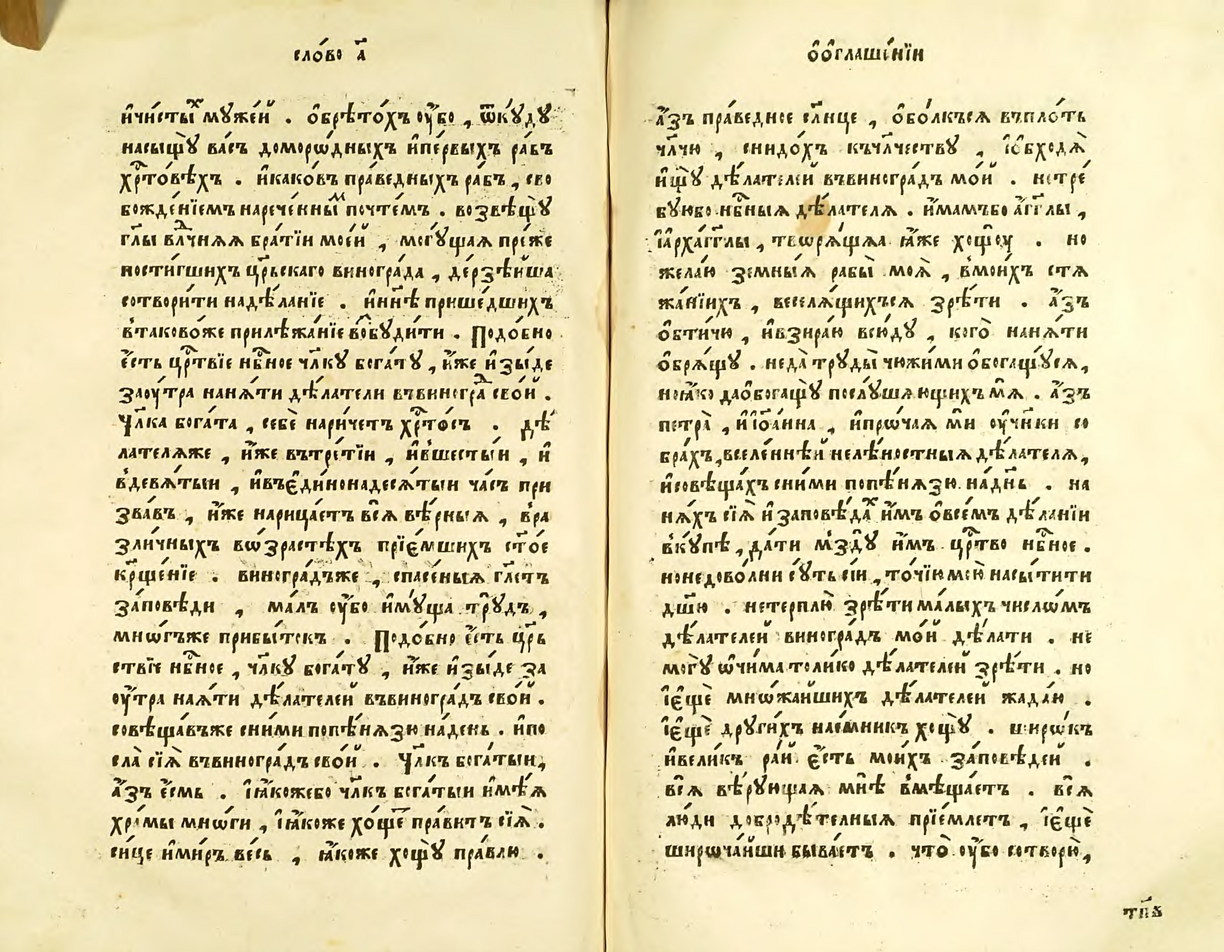 сло́во а҃
и҆чи́стыⷯ муже́й . ѡ҆брѣто́хъ ᲂу҆̀бо , ѿку́дꙋ
насы́щꙋ ва́съ доморѡ́дныхъ и҆пе́рвыхъ ра́бъ
хрⷭ҇то́вѣхъ . и҆како́въ пра́ведныхъ ра́бъ , сво
божде́нїемъ нарече́нныⷨ почте́мъ . возвѣщꙋ̀
гл҃ы влⷣчнѧѧ бра́тїи мое́й , могꙋ́щаѧ пре́же
пости́гшихъ црⷭ҇ьскаго виногра́да , дерзѣ́йша
сотвори́ти надѣ́ланїе . и҆нн҃ѣ прише́дшихъ
в̾таково́же прилѣжа́нїе во̾збуди́ти . Подо́бно
є҆́сть црⷭ҇твїе нбⷭ҇ное чл҃кꙋ бога́тꙋ , и҆́же и҆зы́де
заоу́тра наѧ́ти дѣ́латели въвиногра́ⷣ сво́й .
Чл҃ка бога́та , себѐ нарича́етъ хрⷭ҇то́съ . дѣ́
лателѧже , и҆́же вътре́тїи , и҆в̾шесты́и , и҆
в̾девѧ́тыи , и҆въєди́нонадесѧ́тыи ча́съ при
зва́въ , и҆́же нарица́етъ всѧ̀ вѣ́рныѧ , в̾ра
зли́чныхъ во́зрастѣхъ прїе́мшихъ ст҃о́е
крⷭ҇ще́нїе . виногра́дъже , спасе́ныѧ гл҃етъ
за́повѣди , ма́лъ ᲂу҆̀бо и҆мꙋ́ща трꙋ́дъ ,
мно́гъже прибы́токъ . Подо́бно є҆́сть црⷭ҇ь
ствїе нбⷭ҇ное , чл҃кꙋ бога́тꙋ , и҆́же и҆зы́де за
ᲂу҆́тра наѧ́ти дѣ́лателей въвиногра́дъ сво́й .
совѣща́въже сни́ми попѣ́нѧзю на́день . и҆по
сла̀ сїѧ̀ въвиногра́дъ сво́й . Чл҃къ бога́тыи ,
а҆́зъ є҆́смь . ꙗ҆́кожебо чл҃къ бога́тыи и҆мѣ́ѧ
хра́мы мнѡ́ги , ꙗ҆́коже хо́щеⷮ пра́витъ сїѧ̀ .
си́це и҆ми́ръ ве́сь , ꙗ҆́коже хощꙋ̀ пра́влю .
ѡ҆ѡ҆глаше́нїи
а҆́зъ пра́ведное сл҃нце , ѡ҆боло́късѧ въпло́ть
чл҃чю , снидо́хъ къчл҃честву , и҆ѡ҆бходѧ̀
и҆щꙋ̀ дѣ́лателей въвиногра́дъ мо́й . нетре́
бꙋюбо нбⷭ҇ныѧ дѣ́лателѧ . и҆́мамъбо а҆́гг҃лы ,
и҆а҆рха́гг҃лы , творѧ́щаѧ ꙗ҆́же хощꙋ̀ . но
жела́ю земны́ѧ рабы̀ моѧ̀ , в̾мои́хъ стѧ
жа́нїихъ , веселѧ́щихъсѧ зрѣ́ти . а҆́зъ
ѡ҆б̾ти́чю , и҆взира́ю всю́дꙋ , кого̀ наѧ́ти
ѡ҆брѧ́щꙋ . неда̀ трꙋды̀ чюжи́ми ѡ҆богащꙋ́сѧ ,
ноꙗ҆́ко даѡ҆богащꙋ̀ послꙋ́шающихъ мѧ̀ . а҆́зъ
петра̀ , и҆и҆ѡ҆а́нна , и҆прѡ́чаѧ мѝ ᲂу҆чн҃ки со
бра́хъ , вселе́ннѣй нелѣ́ностныѧ дѣ́лателѧ ,
и҆совѣща́хъ сни́ми попѣ́нѧзю на́дн҃ь . на
нѧ́хъ сїѧ̀ и҆заповѣ́даⷯ и҆̀мъ ѡ҆все́мъ дѣ́ланїи
вку́пѣ , да́ти мздꙋ̀ и҆̀мъ црⷭ҇тво нбⷭ҇ное .
нонедово́лни сꙋ́ть сїи , то́чїюмою̀ насы́тити
дш҃ю . нетерплю̀ зрѣ́ти ма́лыхъ число́мъ
дѣ́лателей виногра́дъ мо́й дѣ́лати . не
могꙋ̀ ѡ҆чи́ма толи́ко дѣ́лателей зрѣ́ти . но
і҆єщѐ мно́жайшихъ дѣ́лателей жада́ю .
і҆єщѐ дрꙋги́хъ нае́мникъ хощꙋ̀ . широ́къ
и҆вели́къ ра́й є҆́сть мои́хъ за́повѣдей .
всѧ̀ вѣ́рꙋющаѧ мнѣ̀ в̾мѣща́етъ . всѧ̀
лю́ди добродѣ́телныѧ прїе́млетъ , і҆єщѐ
ширѡча́йши быва́етъ . что̀ ᲂу҆̀бо сотворю̀ ,